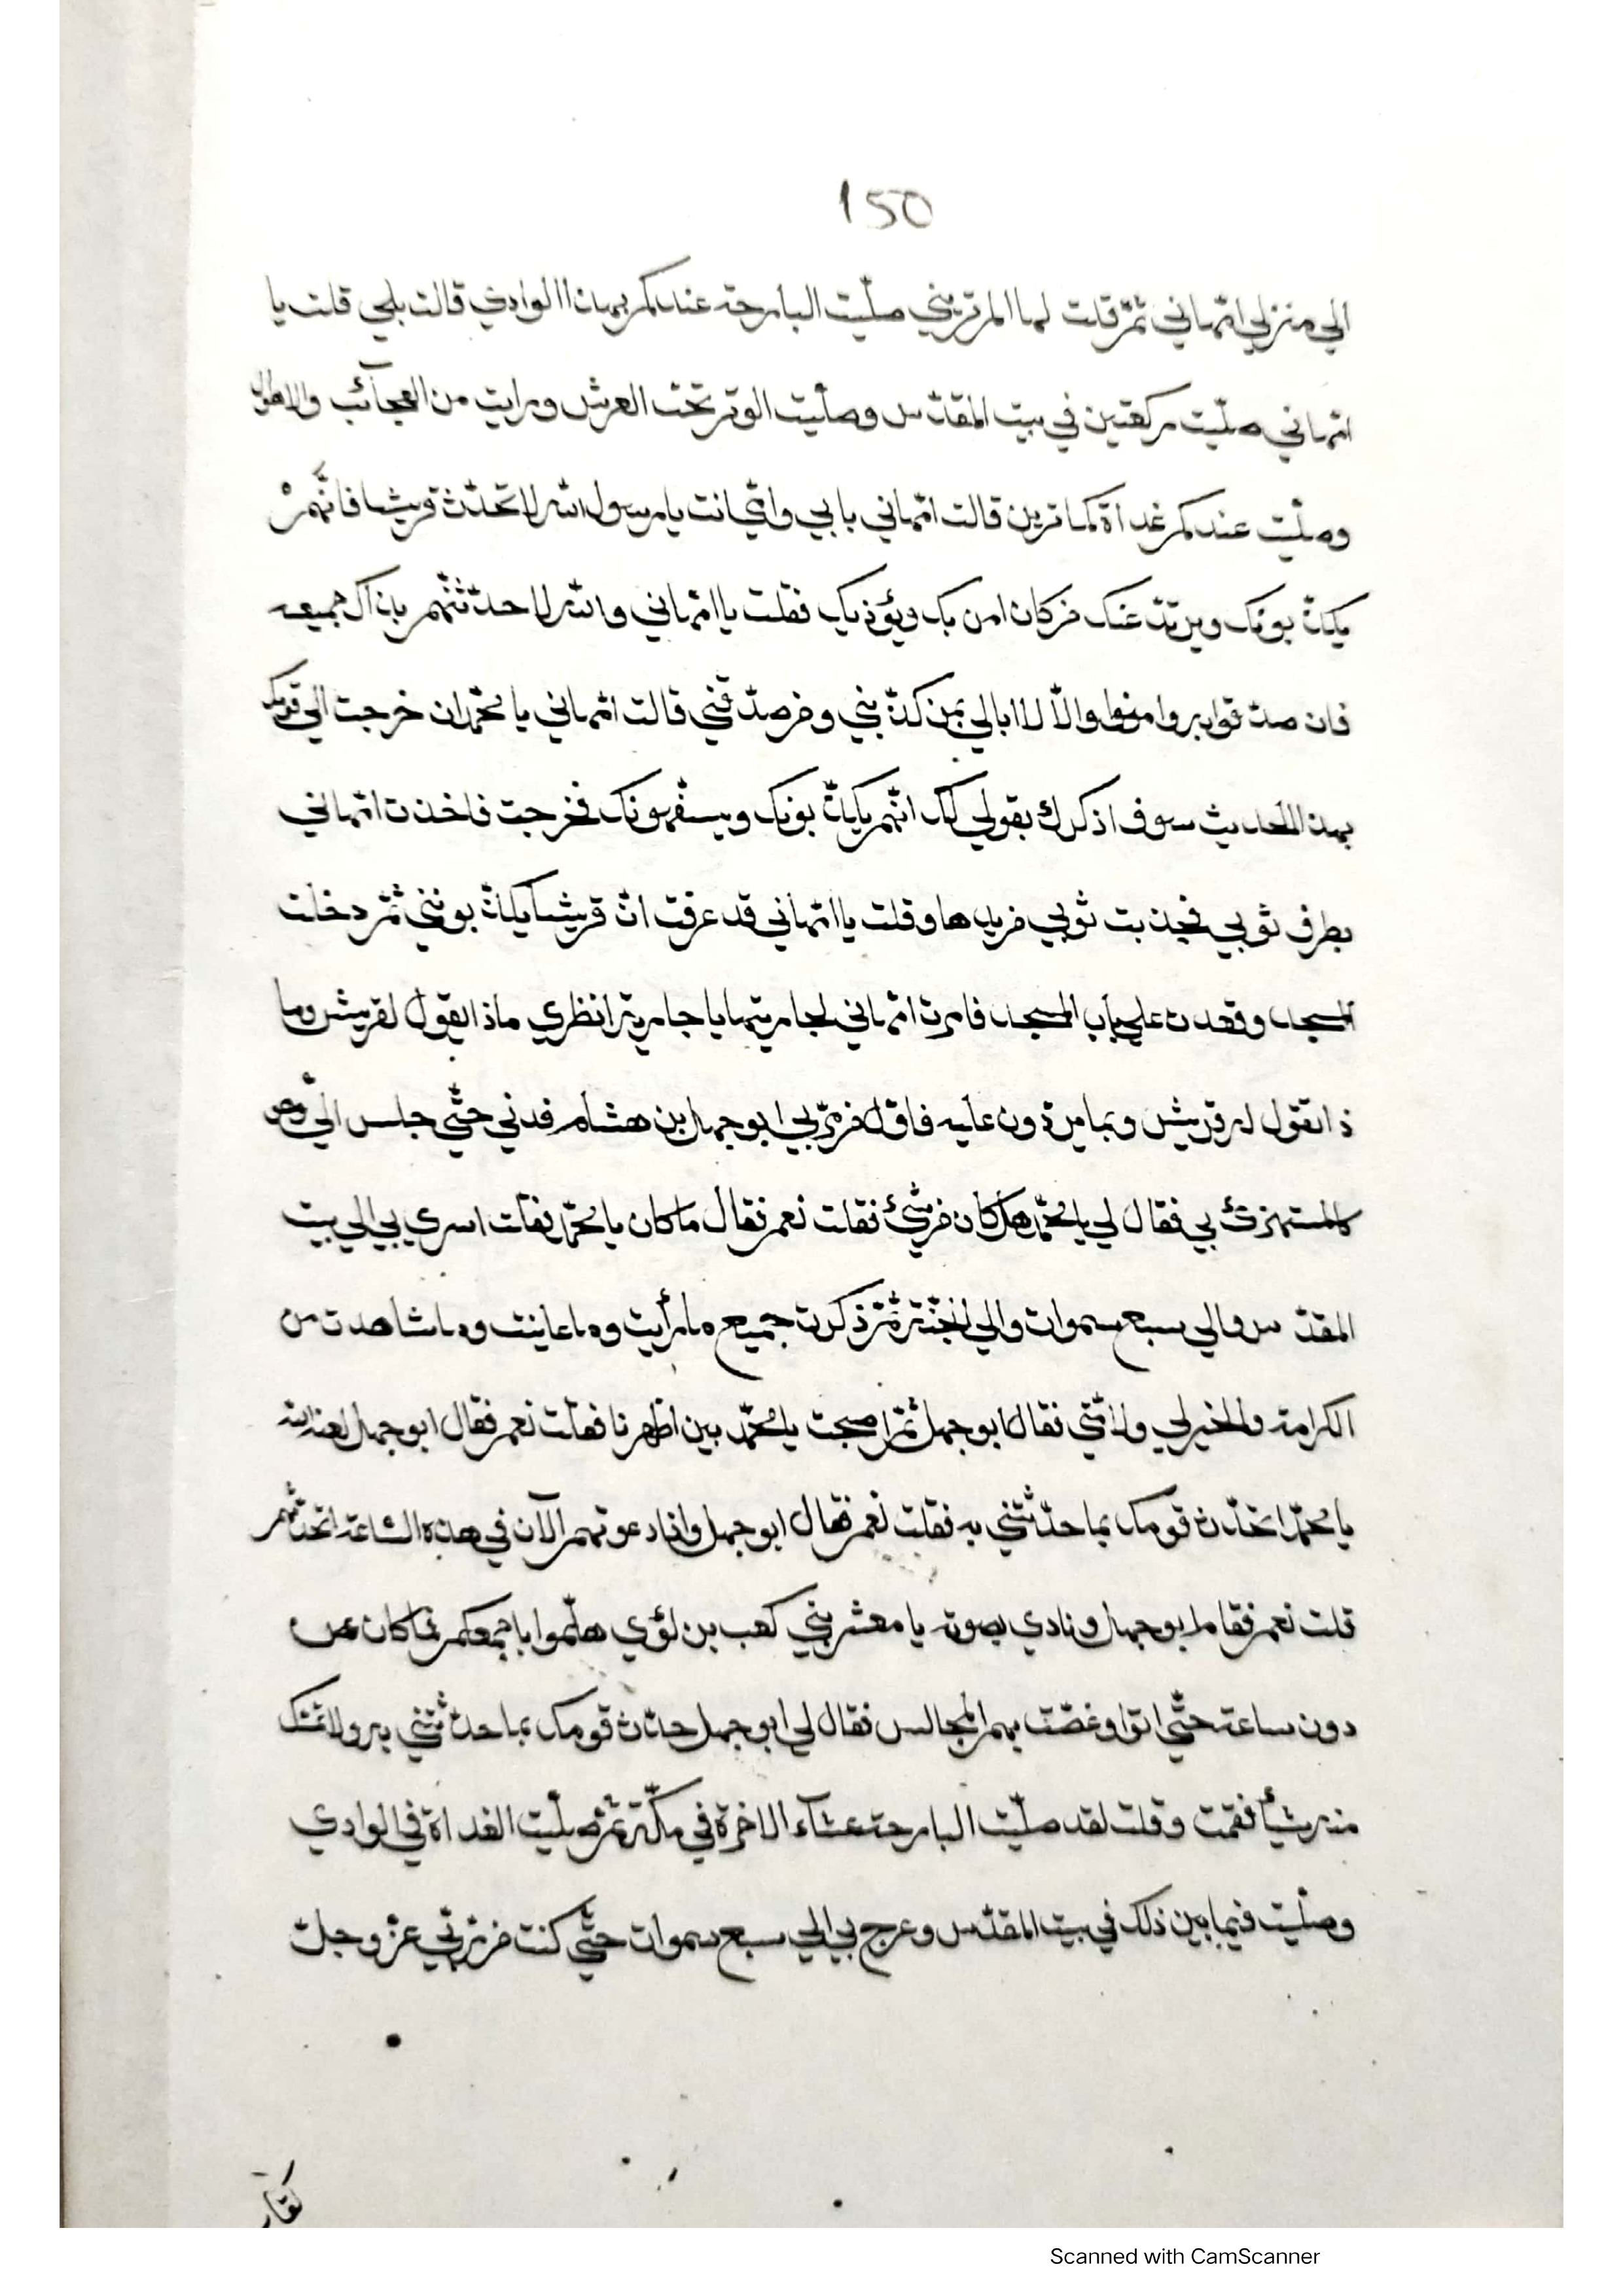 150
الي منزل امّهاني ثمّ قلت لها الم تريني صلّيت البارحة عندكم بهذا الوادي قالت بلي قلت يا
امّهاني صلّيت ركعتين في بيت المقدّس وصلّيت الوتر تحت العرش ورايت من العجآئب والاهوال
وصلّيت عندكم غداة كما ترين قالت امّهاني بابي وامّي انت يارسول الله لا تحدّث قريشا فانّهمْ
يكذّبونك ويرتدّ عنك من كان امن بك ويؤذيك فقلت ياامّهاني والله لاحدّثنّهم بذالك جميعه
فان صدقوا بروا منوا والّا لا ابالي بمن كذّبني ومن صدّقني قالت امّهاني يا محمّد ان خرجت الي قومك
بهذا الحديث سوف اذكرك بقولي لك انّهم يكذّبونك ويستفهونك فخرجت فاخذت امّهاني
بطرف ثوبي فجذبت ثوبي من يدها وقلت ياامّهاني قد عرفت انّ قريشا يكذّبونني ثمّ دخلت
المسجد وقعدت علي باب المسجد فامرت امّهاني لجاريتها يا جارية انظري ماذا يقول لقريش وما
ذا تقول له قريش وبما يردّون عليه فاوّل من مرّ بي ابوجهل بن هشام فدني حتّي جلس اليّ وهو
كالمستهزئ بي فقال لي يا محمّد هل كان من شيئ فقلت نعم فقال ما كان يا محمّد فقلت اسري بي الي بيت
المقدّس والي سبع سموات والي الجنّة ثمّ ذكرت جميع ما رأيت وما عاينت وما شاهدت من
الكرامة والخير لي ولامّتي فقال ابوجهل ثمّ اصبحت يا محمّد بين اظهرنا فقلت نعم فقال ابوجهل لعنه الله
يا محمّد اتحدّث قومك بما حدّثتني به فقلت نعم فقال ابوجهل واذا دعوتهم الآن في هذه السّاعة اتحدّثهم
قلت نعم فقام ابوجهل ونادي بصوته يا معشر بني كعب بن لؤي هلمّوا باجمعكم فما كان
دون ساعة حتّي اتوا وغصّت بهم المجالس فقال لي ابوجهل حدّث قومك بما حدّثتني به ولا تمسك
منه شيأ فقمت وقلت لقد صلّيت البارحة عشآء الاخرة في مكّة ثمّ صلّيت الغداة في الوادي
وصلّيت فيما بين ذلك في بيت المقدّس وعرج بي الي سبع سموات حتّي كنت من ربّي عزّ وجلّ
Scanned with CamScanner